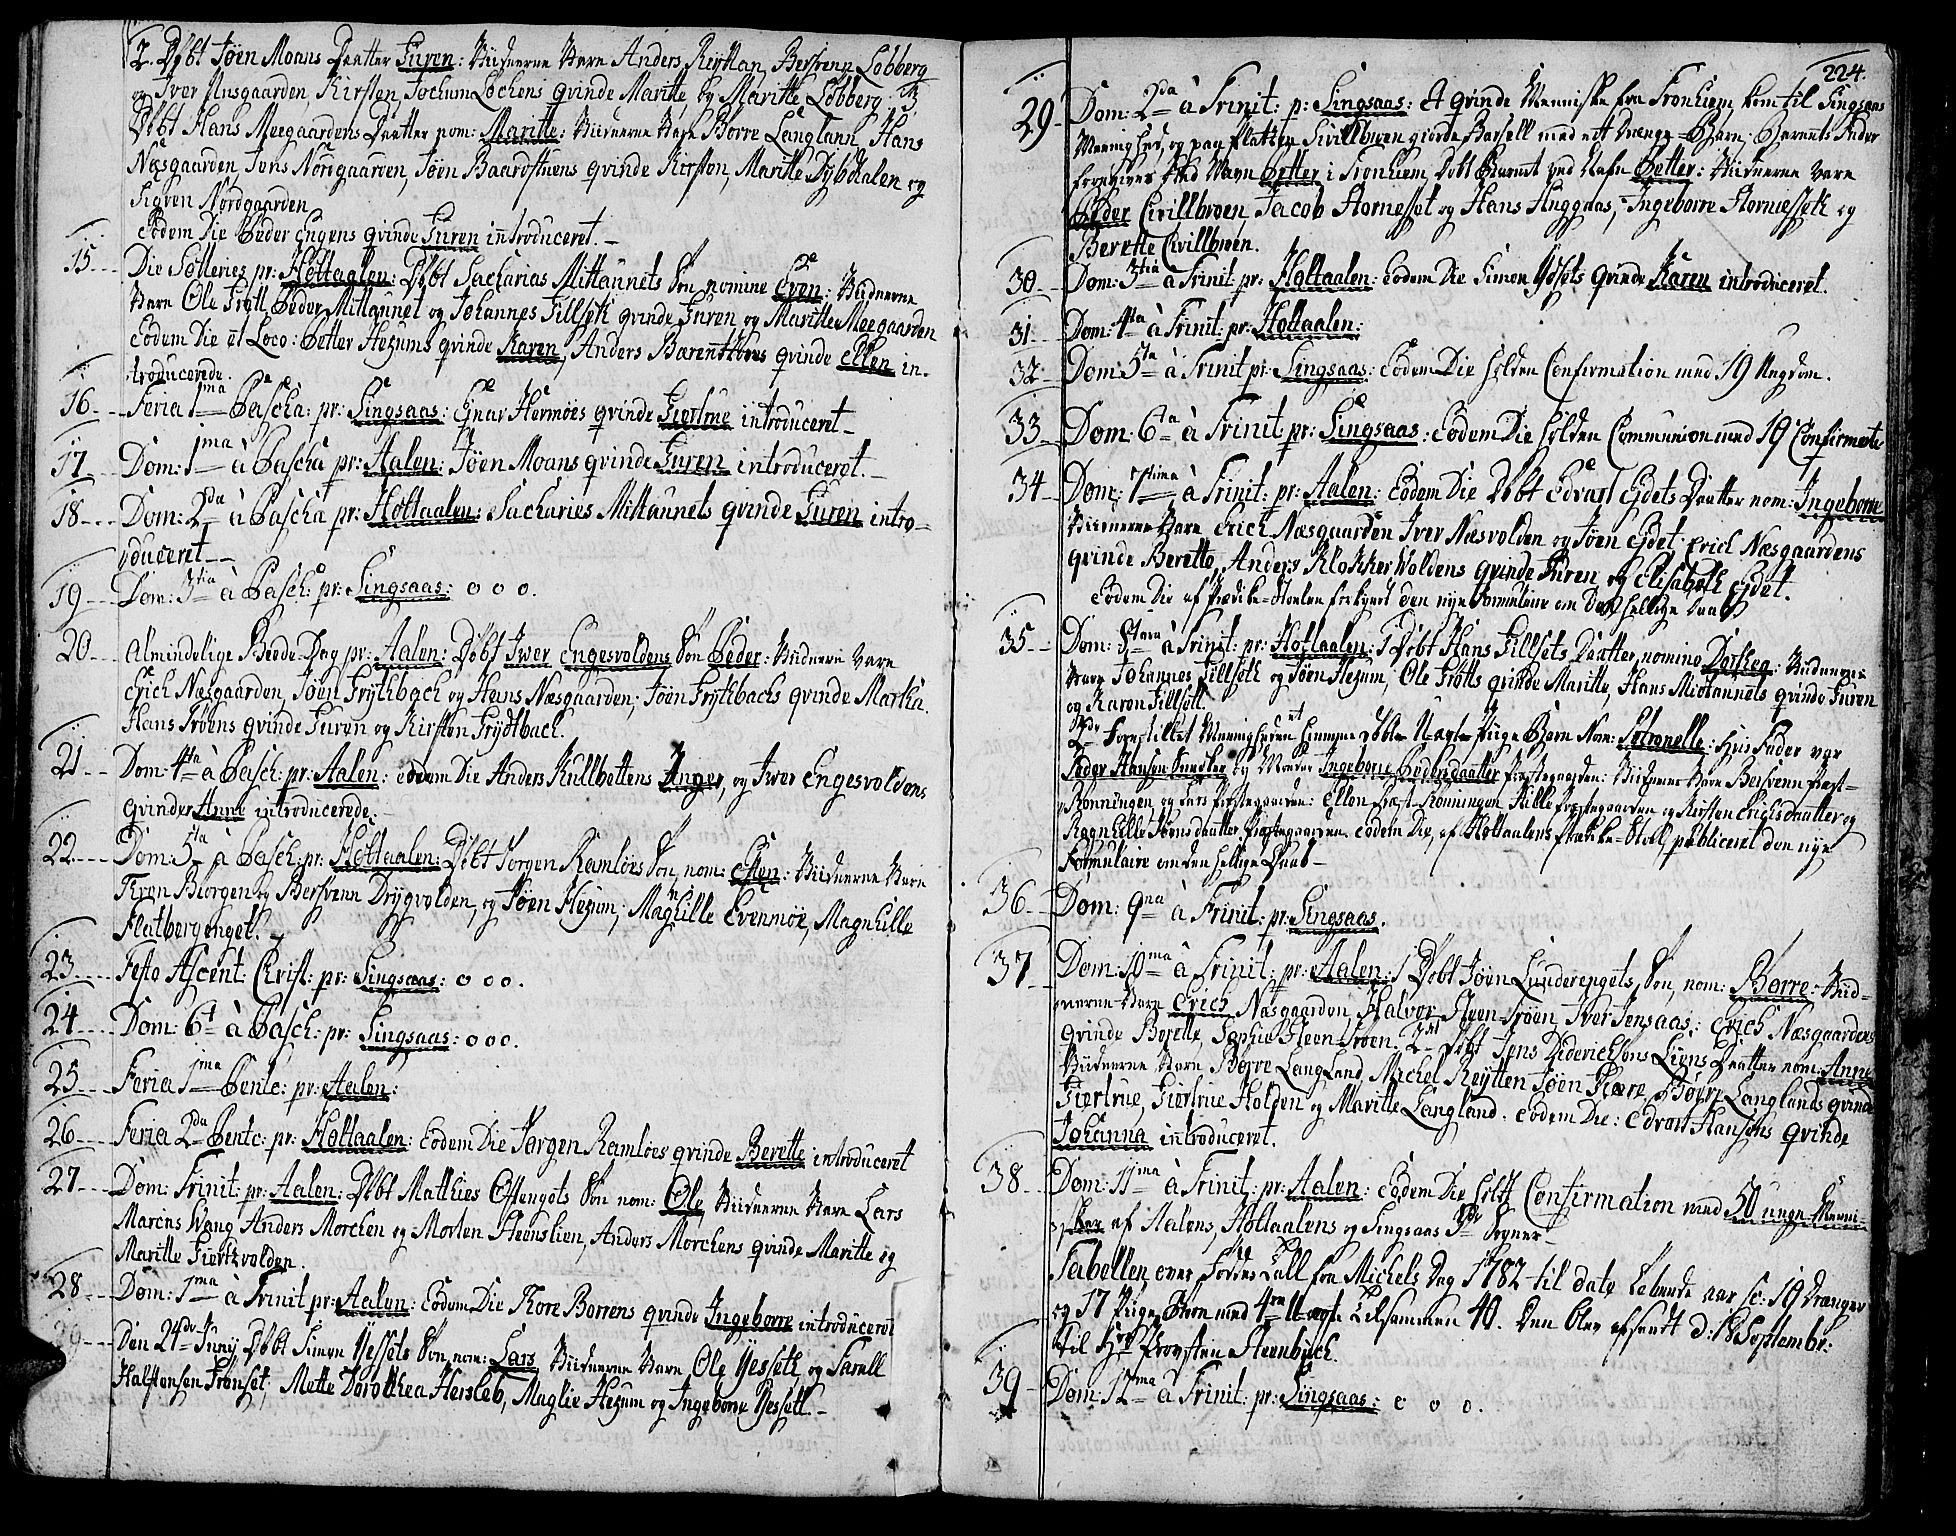 2. Döbt Jöen Moans Daatter Guren: Vidnerne Vare Anders Reyttan, Bersvenn Löbberg
og Iver Unsgaarden, Kirsten, Jochum Lochens qvinde Maritte, og Maritte Löbberg. 3
Döbt Hans Meegaardens Daatter nom: Maritte: Vidnerne Vare Börre Langlann, Hans
Næsgaarden, Jens Nordgaarden, Jöen Baardstuens qvinde Kirsten, Maritte Dybdalen og
Sigren Nordgaarden
Eodem Die Peder Engens qvinde Guren introduceret.
15 Die Sölleries pr: Holtaalen: Döbt Sacharias Mittaunets Sön nomine Even: Vidnerne
Vare Ole Trött, Peder Mittaunet og Johannes Gillseth qvinde Guren og Maritte Meegaarden
Eodem Die et Loco: Petter Hegums qvinde Karen, Anders qvinde Ellen in-
troducerede.
16 Feria 1ma Pascha: pr: Singsaas: Ejnar Hermoes qvinde Giertrue introduceret
17 Dom: 1ma à Pascha pr: Aalen: Jöen Moans qvinde Guren introduceret.
18 Dom: 2da à Pascha pr: Holtaalen: Sacharies Mittaunets qvinde Guren intro-
duceret
19 Dom: 3tia à Pasch: pr: Singsaas: o o o.
20 Almindelige Beede-Dag pr: Aalen: Döbt Iwer Engesvoldens Sön Peder: Vidnerne vare
Erich Næsgaarden, Jöen Grythbach og Hans Næsgaarden; Jöen Grythbachs qvinde Martha.
Hans Tröens qvinde Guren og Kirsten Grydtbach.
21 Dom: 4ta à Pasch: pr: Aalen: eodem Die Anders Kullbettens Inger, og Iwer Engesvoldens
qvinder Anne introducerede.
22 Dom: 5ta à Pasch: pr: Holtaalen: Döbt Jörgen Ramlöes Sön, nom: Esten: Vidnerne Vare
Bersvenn Drygvolden, og Jöen Hegum; Magnille Evenmoe, Magnhille
Flatbergenget.
23 Festo Ascent: Christ: pr: Singsaas: o o o.
24 Dom: 6t à Pasch: pr: Singsaas: o o o.
25 Feria 1ma Pentc: pr: Aalen:
26 Feria 2da Pentc: pr: Holtaalen: Eodem Die Jörgen Ramloes qvinde Berette introduceret
27 Dom: Trinit: pr: Aalen: Döbt Matthies Sön nom: Ole, Vidnerne Vare Lars
Marcus Wang, Anders Morchen og Morten Heenslien, Anders Morchens qvinde Maritte og
Maritte Giertzvolden.
28 Dom: 1ma à Trinit pr: Aalen: Eodem Die Tore Borrens qvinde Ingeborre introduceret
29 Den 24de Junij Döbt Simen Yssets Sön, nom: Lars Vidnerne Vare Ole Ysseth, og
Halstensen Fronset, Mette Dorothea Hersleb, Maglie Hegum og Ingeborre Yssett.
224.
29 Dom: 2da à Trinit: pr: Singsaas: Et qvinde Menniske fra Tronhiem, kom til Singsaas
Menighed, og paa Pladtzen Sivillbroen giorde Barsell med ett Drænge-Barn; Barnets Fader
foregives ved Navn Petter i Tronhiem, Döbt Barnet ved Nafn Petter: Vidnerne vare
Peder Civillbroen, Jacob Hornesset og Hans Haggaas, Ingeborre Horniesseth og
Berette Civillbroen.
30 Dom: 3tia à Trinit pr: Holtaalen: Eodem Die Simen Ysets qvinde Karen introduceret.
31 Dom: 4ta à Trinit: pr: Holtaalen:
32 Dom: 5ta à Trinit pr: Singsaas: Eodem Die holden Confirmation med 19 Ungdom.
33 Dom: 6ta à Trinit pr: Singsaas: Eodem Die holden Communion med 19 Confirmerte
34 Dom: 7tima à Trinit: pr: Aalen: Eodem Die Döbt Edvart Eydets Daatter nom: Ingeborre
Vidnerne Vare Erich Næsgaarden Iver Næsvolden og Jöen Eydet: Erich Næsgaardens
qvinde Berette, Anders Klokker Woldens qvinde Guren, og Elisabeth Eydet.
Eodem Die af Prædike-Stoelen forkyndt den nye Formulaire om Den hellige Daab
35 Dom: 8tava à Trinit: pr: Holtaalen: 1 Döbt Hans Gillsets Daatter nomine Dorthea: Vidnerne
Vare Johannes Gillseth og Jöen Hegum, Ole Trötts qvinde Maritte, Hans Mittaunets qvinde Guren
og Karen Gillsett.
2de Forestillet Menigheden et hiemme döbte Uægte Piige Barn Nom: Petronelle: hvis Fader var
Peder Hansen Smedleg og Moeder Ingeborre Pedersdaatter Præstegaarden: Vidnerne Vare Bersvenn Præst-
Rönningen og Lars Præstegaarden: Ellen Præst-Rönningen Hille Præstegaarden og Kirsten Erichsdaatter og
Ragnhille Jöensdaatter Præstegaarden. Eodem Die, af Holtaalens Prædike-Stoll, publiceret den nye
Formulaire om den hellige Daab
36 Dom: 9na à Trinit: pr: Singsaas.
37 Dom: 10ma à Trinit: pr: Aalen: 1 Döbt Jöen Lunderengets Sön, nom: Börre: Vid-
nerne Vare Erich Næsgaarden, Halvor Heen-Tröen Iver Jensaas: Erich Næsgaardens
qvinde Berette, Sophie Heen-Troen. 2 Döbt Jens Diderichsöns Liens Daatter nom: Anne
Vidnerne Vare Börre Langland, Michel Reytten Jöen Kiære, Börre Langlands qvinde
Giertrue, Giertrue Holden og Maritte Langland. Eodem Die: Edvart Hansöns qvinde
Johanna introduceret.
38 Dom: 11ma à Trinit: pr: Aalen: Eodem Die holdt Confirmation med 50 unge Menni-
sker af Aalens, Holtaalens og Singsaas 3de Sogner
Tabellen over Föddes Tall fra Michels Dag 1782 til dato löbende aar sc: 19 Drænger
og 17 Piige Börn med 4re Uægte tilsammen 40. Den blev afsendt d: 18 Septembr:
til Hr Provsten Steenbuch.
39 Dom: 12ma à Trinit: pr: Singsaas: o o o.